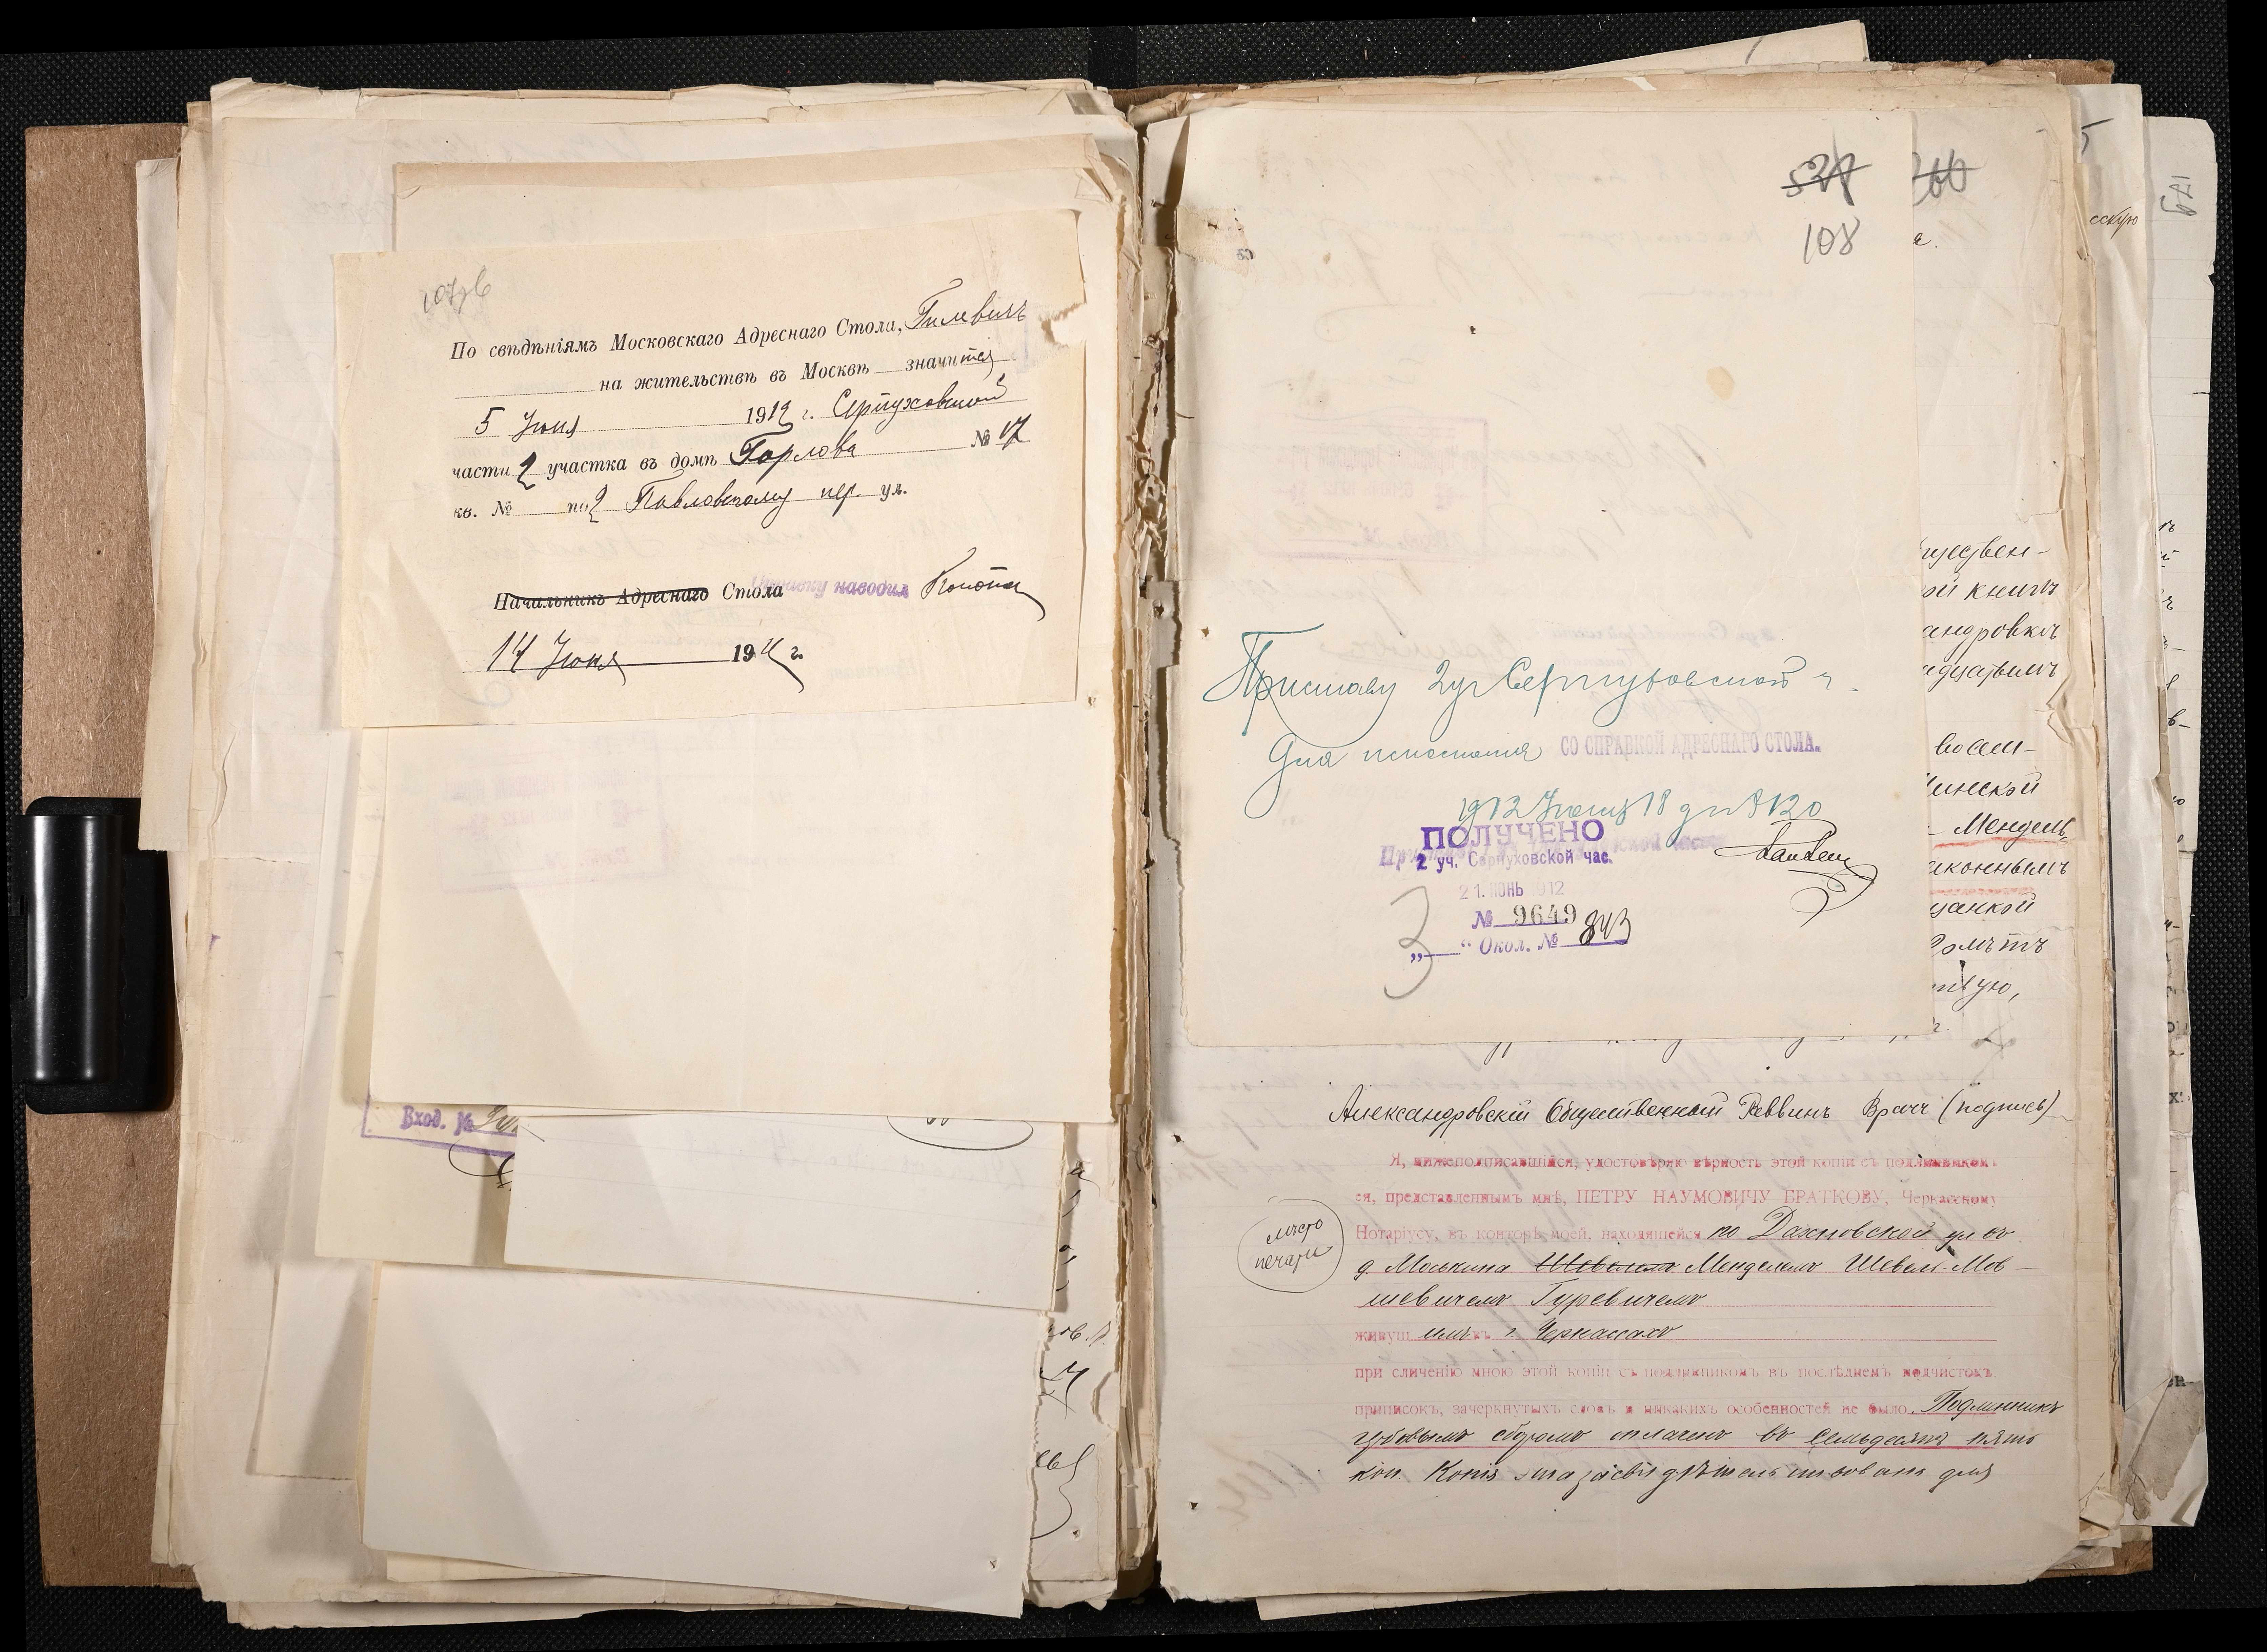 По свѣдѣніямъ Московскаго Адреснаго Стола, Гилевичъ
на жительствѣ въ Москвѣ значится
5 Іюня 1912 г. Серпуховской
части 2 участка въ домѣ Горлова № 17
кв. № по 2 Павловскому пер. ул.
Начальникъ Адреснаго Стола Справку наводил
14 Іюня 1912 г.
Вход. №
108
Приставу 2 уч Серпуховской ч.
Для исполнения СО СПРАВКОЙ АДРЕСНАГО СТОЛА.
1912 Іюня 18 дня № 120
ПОЛУЧЕНО
2 уч. Серпуховской час.
21. ІЮНЬ 1912
№ 9649
„ “ Окол. № 843
3
скую
а.
ществен-
ой книгѣ
андровкѣ
адцатымъ
восем-
инской
Мендель,
аконнымъ
щанкой
Александровскій Общественный Раввинъ Врачъ (подпись)
Я, нижеподписавшійся, удостовѣряю вѣрность этой копіи съ подлинникомъ
ея, представленнымъ мнѣ, ПЕТРУ НАУМОВИЧУ БРАТКОВУ, Черкасскому
Нотаріусу, въ конторѣ моей, находящейся по Дахновской ул въ
мѣсто
печати
д. Моськина Шевелемъ Менделемъ Шевель-Мов-
шевичемъ Гуревичемъ
живущимъ въ г. Черкассахъ
при сличеніи мною этой копіи съ подлинникомъ въ послѣднемъ подчистокъ
приписокъ, зачеркнутыхъ словъ и никакихъ особенностей не было. Подлинникъ
гербовымъ сборомъ оплаченъ въ семьдесятъ пять
коп. Копія эта засвидѣтельствована для